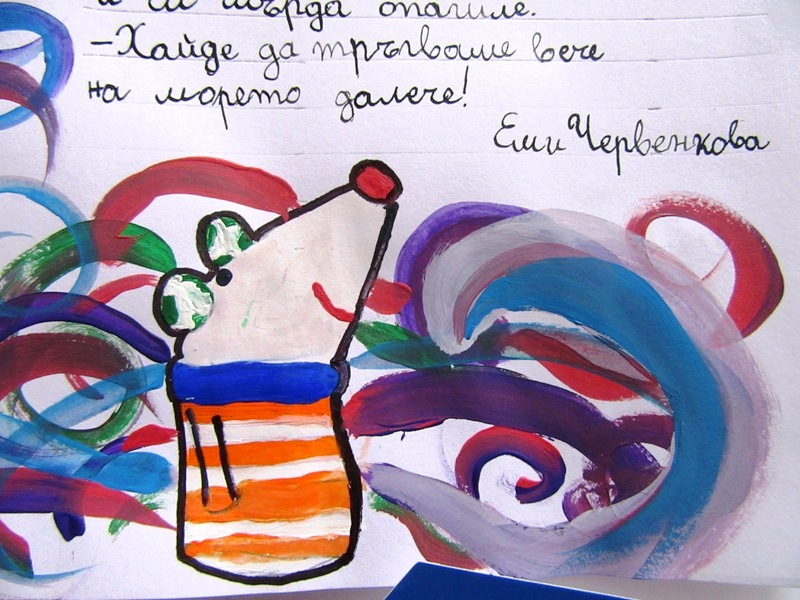 и си твърда опашле.
-Хайде да тръгваме вече
на морето далече!
Еми Червенкова